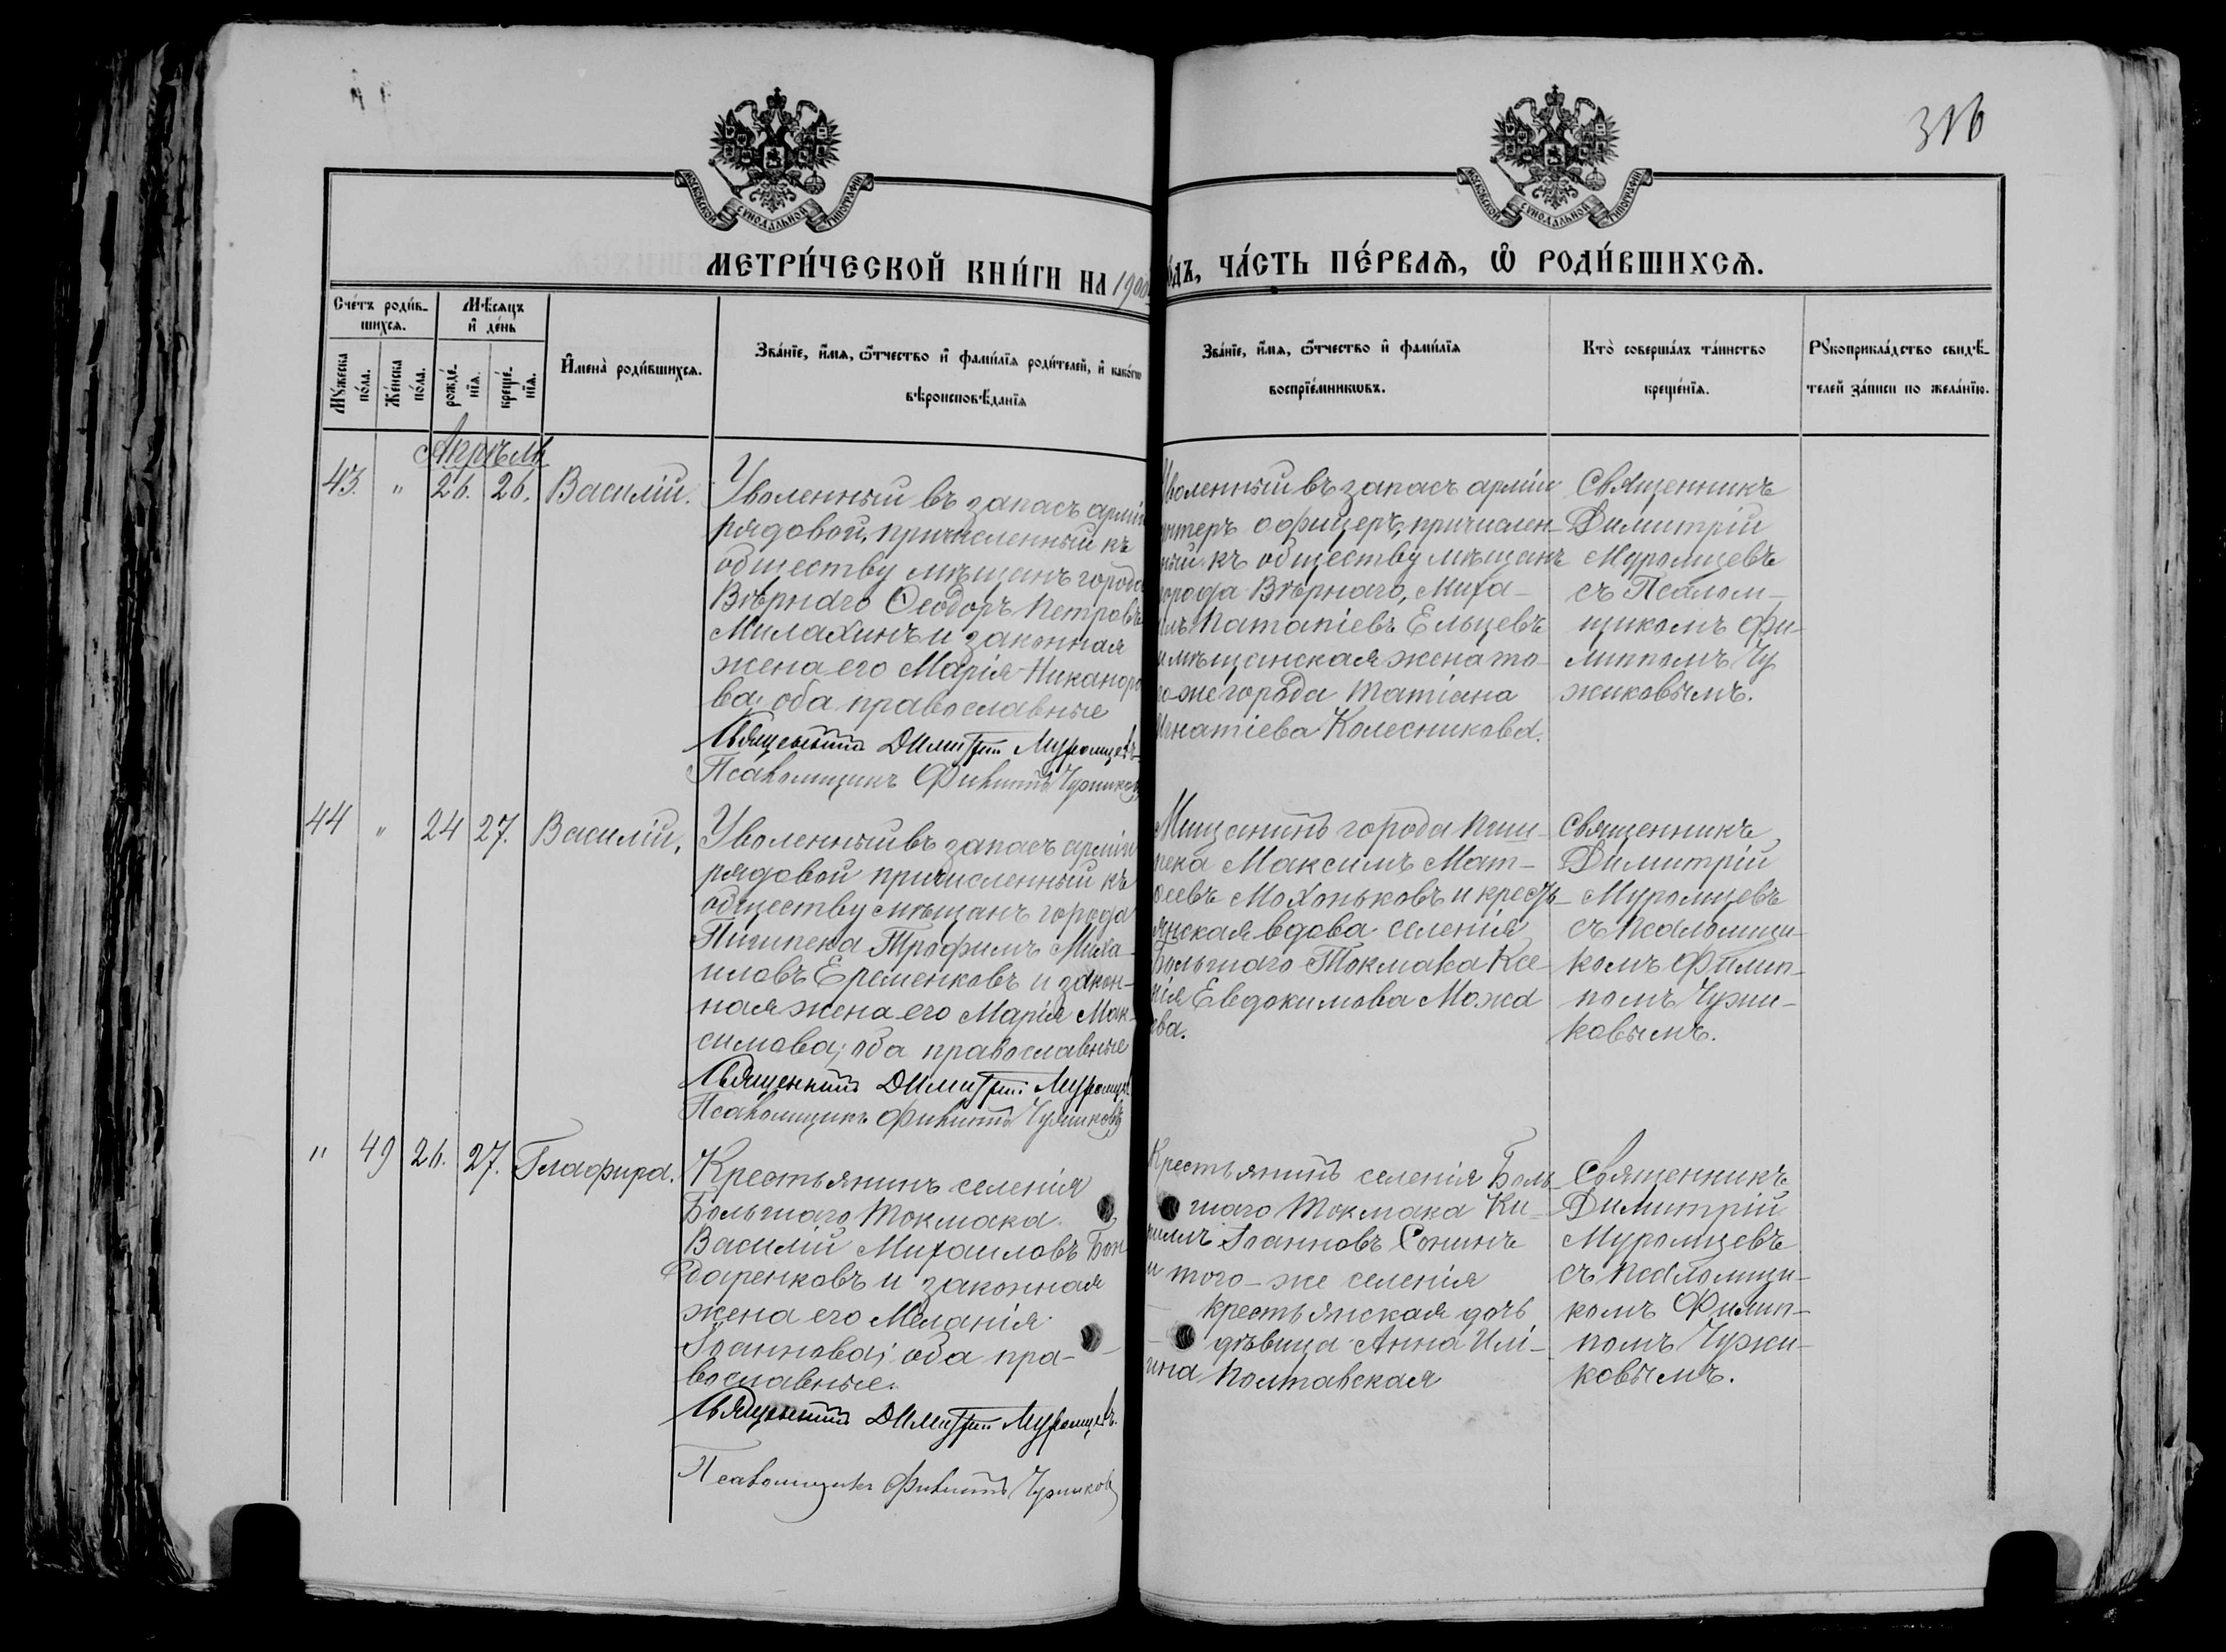 316
МОСКОВСКОЙ СѴНОДАЛЬНОЙ ТИПОГРАФІИ
МОСКОВСКОЙ СѴНОДАЛЬНОЙ ТИПОГРАФІИ
МЕТРИ́ЧЕСКОЙ КНИ́ГИ НА 1900
ѻдъ, ЧА́СТЬ ПЕ́РВАѦ, Ѡ҆ РОДИ́ВШИХСѦ.
Сче́тъ роди́в-
шихсѧ.
Мꙋ́жеска по́ла.
Же́нска по́ла.
Мѣ́сѧцъ
и҆ де́нь
рожде́-
нїѧ.
креще́-
нїѧ.
И҆мена̀ роди́вшихсѧ.
Зва́нїе, и҆́мѧ, ѻ҆́тчество и҆ фами́лїѧ роди́телей, и҆ како́гѡ
вѣроисповѣ́данїѧ
Зва́нїе, и҆́мѧ, ѻ҆́тчество и҆ фами́лїѧ
воспрїе́мникѡвъ.
Кто̀ соверша́лъ та́инство
креще́нїѧ.
Рꙋкоприкла́дство свидѣ́-
телей за́писи по жела́нїю.
Апрѣль
43. " 26. 26. Василій.
Уволенный въ запасъ арміи
рядовой, причисленный къ
обществу мѣщанъ города
Вѣрнаго Ѳеодоръ Петровъ
Милахинъ и законная
жена его Марія Никаноро
ва; оба православные
Священникъ Димитрій Муромцевъ
Псаломщикъ Филиппъ Чужиковъ
Уволенный въ запасъ арміи
унтеръ офицеръ, причислен-
ный къ обществу мѣщанъ
города Вѣрнаго, Миха-
илъ Патапіевъ Ельцевъ
и мѣщанская жена то-
го же города Татіана
Игнатіева Колесникова.
Священникъ
Димитрій
Муромцевъ
съ Псалом-
щикомъ Фи-
липпомъ Чу
жиковымъ.
44 " 24 27. Василій,
Уволенный въ запасъ арміи
рядовой причисленный къ
обществу мѣщанъ города
Пишпека Трофимъ Миха-
иловъ Еременковъ и закон-
ная жена его Марія Мак-
симова; оба православные
Священникъ Димитрій Муромцевъ
Псаломщикъ Филиппъ Чужиковъ
Мищанинъ города Пиш-
пека Максимъ Мат-
ѳеевъ Мохоньковъ и кресть-
янская вдова селенія
Большаго Токмака Ксе-
нія Евдокимова Можа
ева.
Священникъ
Димитрій
Муромцевъ
съ псаломщи-
комъ Филип-
помъ Чужи-
ковымъ.
" 49 26. 27. Глафира.
Крестьянинъ селенія
Большаго Токмака
Василій Михаиловъ Бон
даренковъ и законная
жена его Меланія
Іоаннова; оба пра-
вославные.
Священникъ Димитрій Муромцевъ.
Псаломщикъ Филиппъ Чужиковъ
Крестьянинъ селенія Боль-
шаго Токмака Ки-
рилъ Іоанновъ Сонинъ
и того-же селенія
крестьянская дочь
дѣвица Анна Илі-
ина Полтавская
Священникъ
Димитрій
Муромцевъ
съ псаломщи-
комъ Филип-
помъ Чужи-
ковымъ.